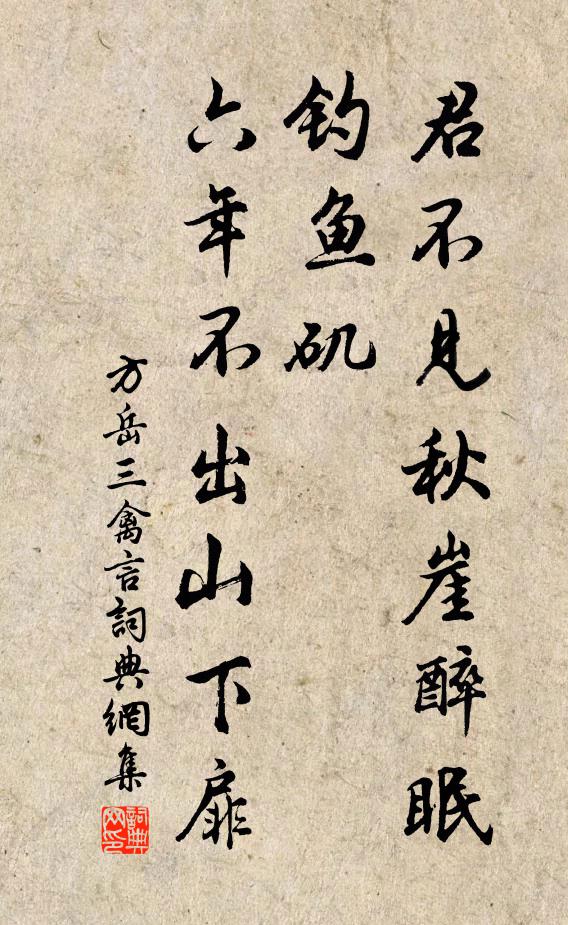 君不见秋崖醉眠
钓鱼矶
六年不出山下扉
方岳三禽言詞典網集
詞典网印